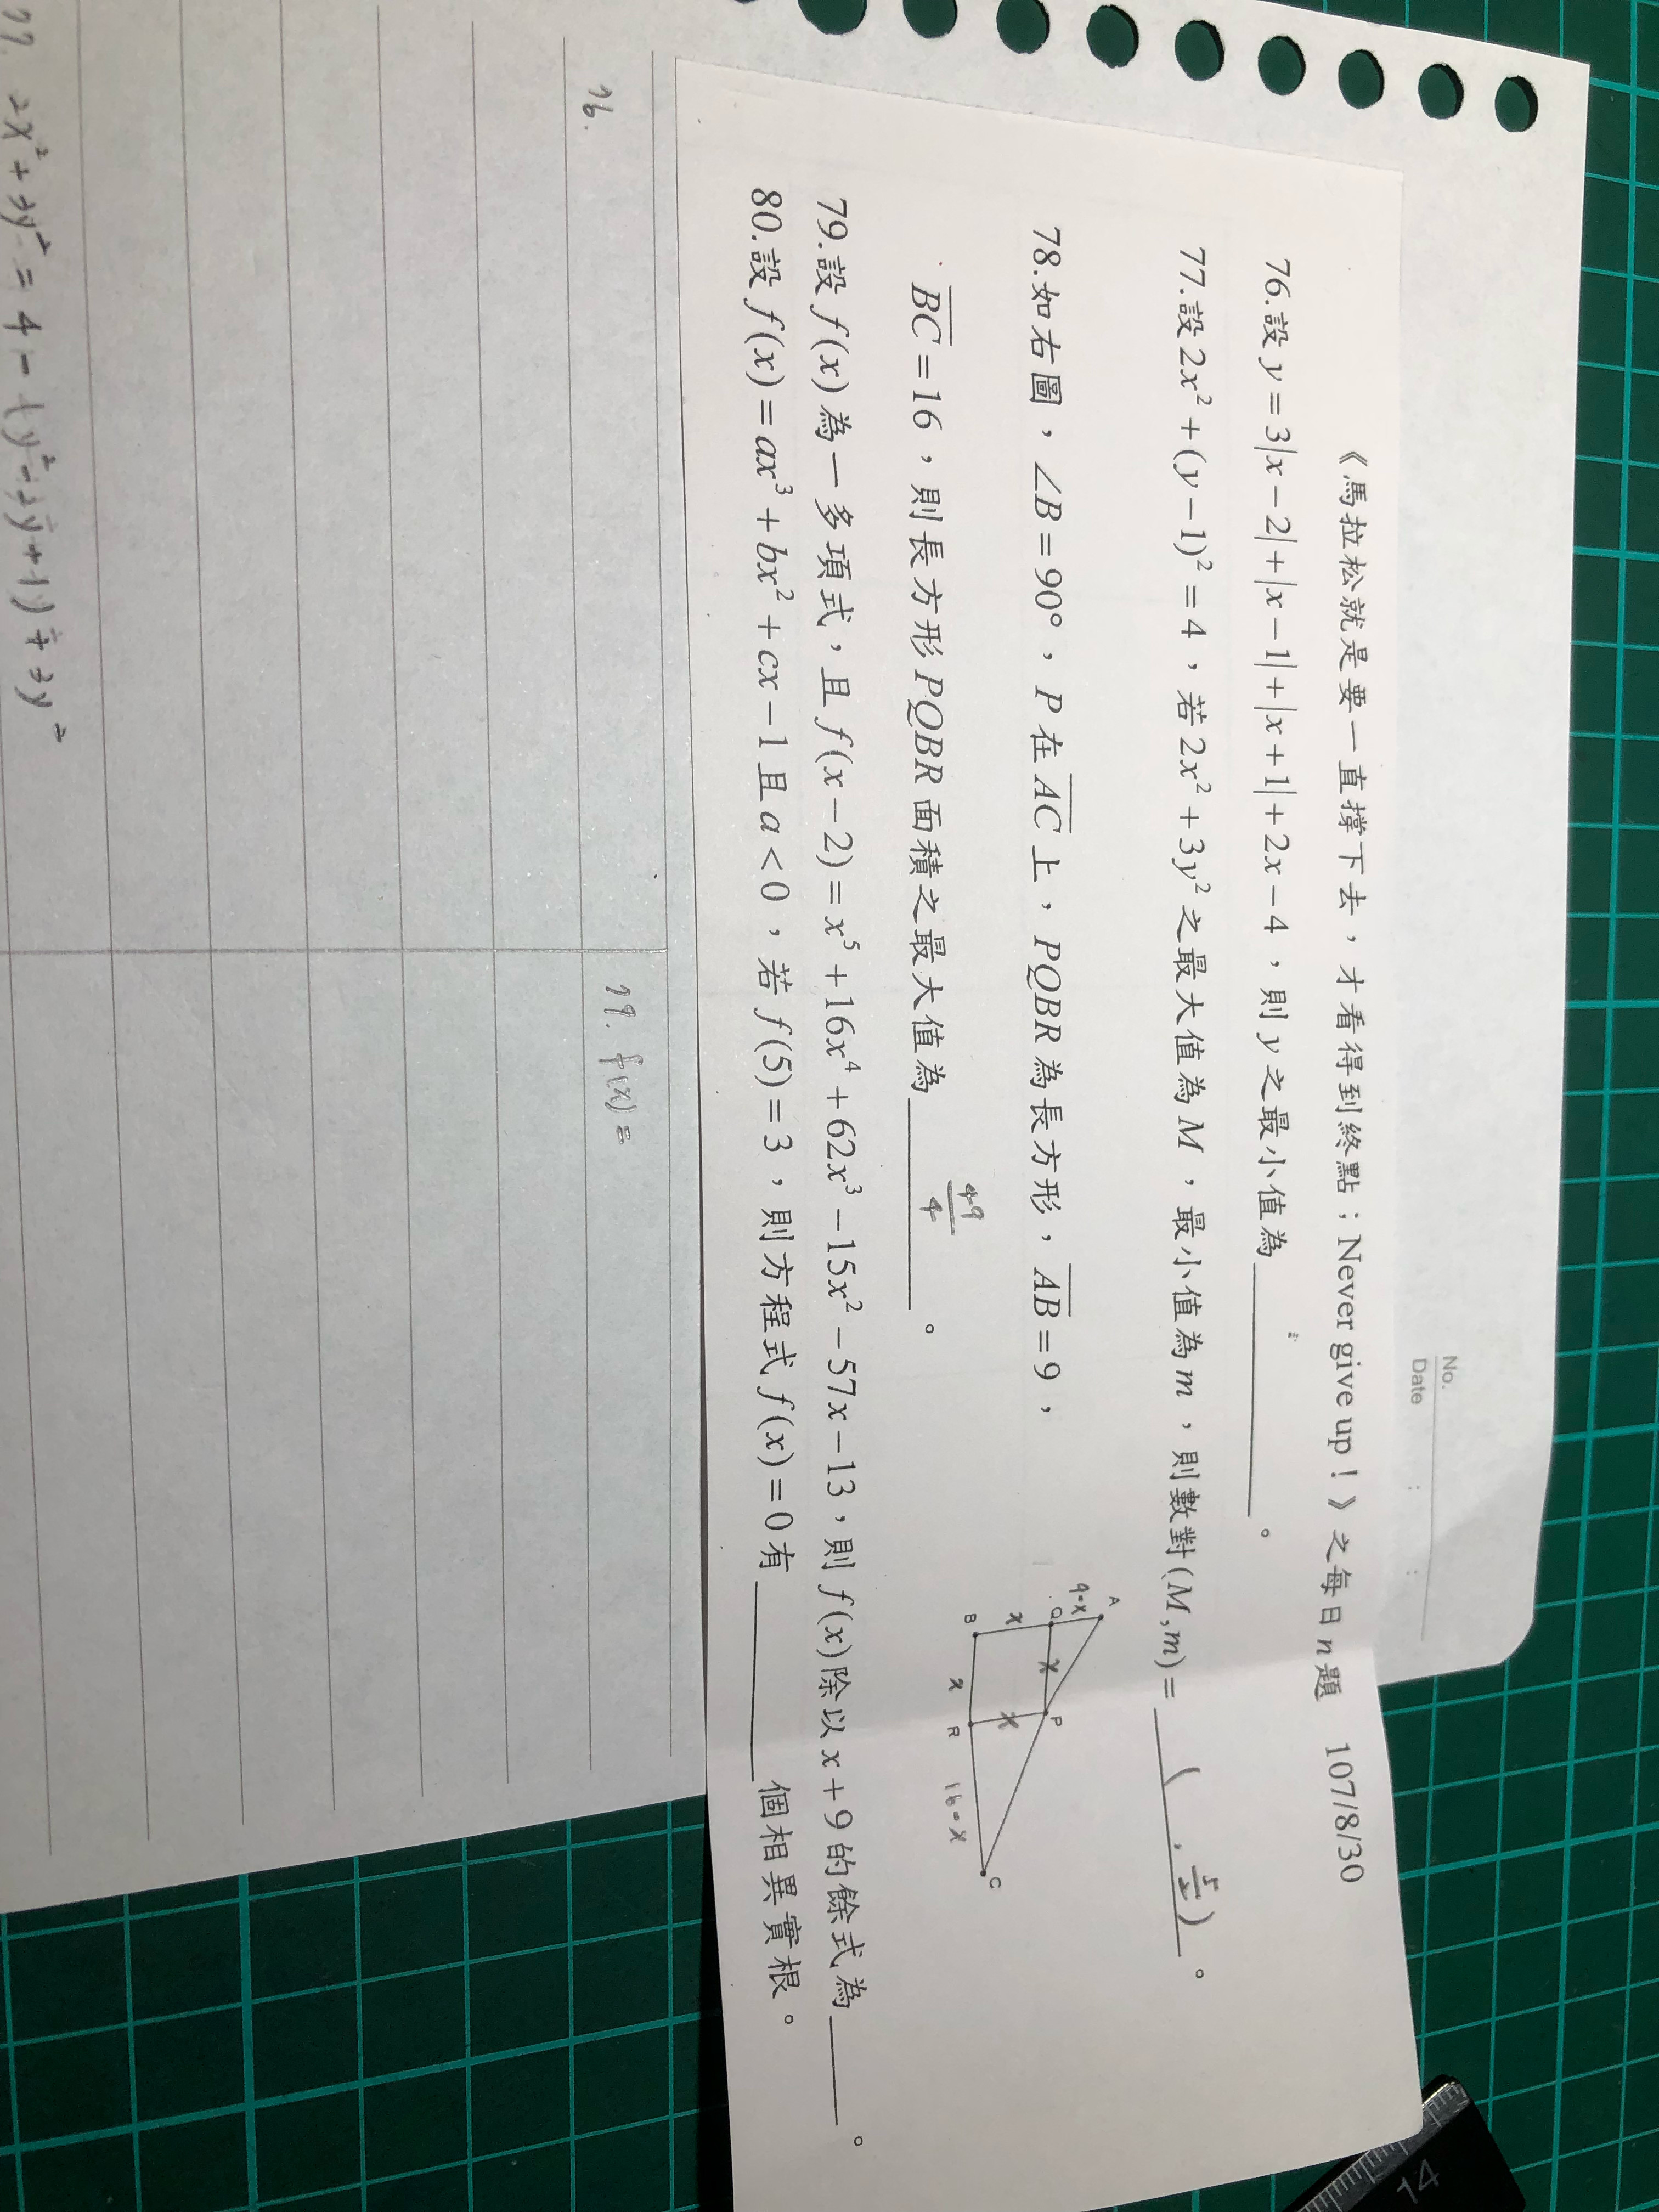 No.
Date : :
《馬拉松就是要一直撐下去，才看得到終點；Never give up！》之每日n題 107/8/30
76.設 y=3|x−2|+|x−1|+|x+1|+2x−4，則 y 之最小值為________。
77.設 2x²+(y−1)²=4，若 2x²+3y² 之最大值為 M，最小值為 m，則數對(M,m)=________。
( , 5/2)
78.如右圖，∠B=90°，P 在 AC 上，PQBR 為長方形，AB=9，
BC=16，則長方形 PQBR 面積之最大值為________。
49/4
A
9-x
Q
x
x
P
B
x
x
R
16-x
C
79.設 f(x) 為一多項式，且 f(x−2)=x⁵+16x⁴+62x³−15x²−57x−13，則 f(x) 除以 x+9 的餘式為________。
80.設 f(x)=ax³+bx²+cx−1 且 a<0，若 f(5)=3，則方程式 f(x)=0 有________個相異實根。
76.
79. f(x)=
77. 2x²+3y²=4-(y²-2y+1)+3y²
14